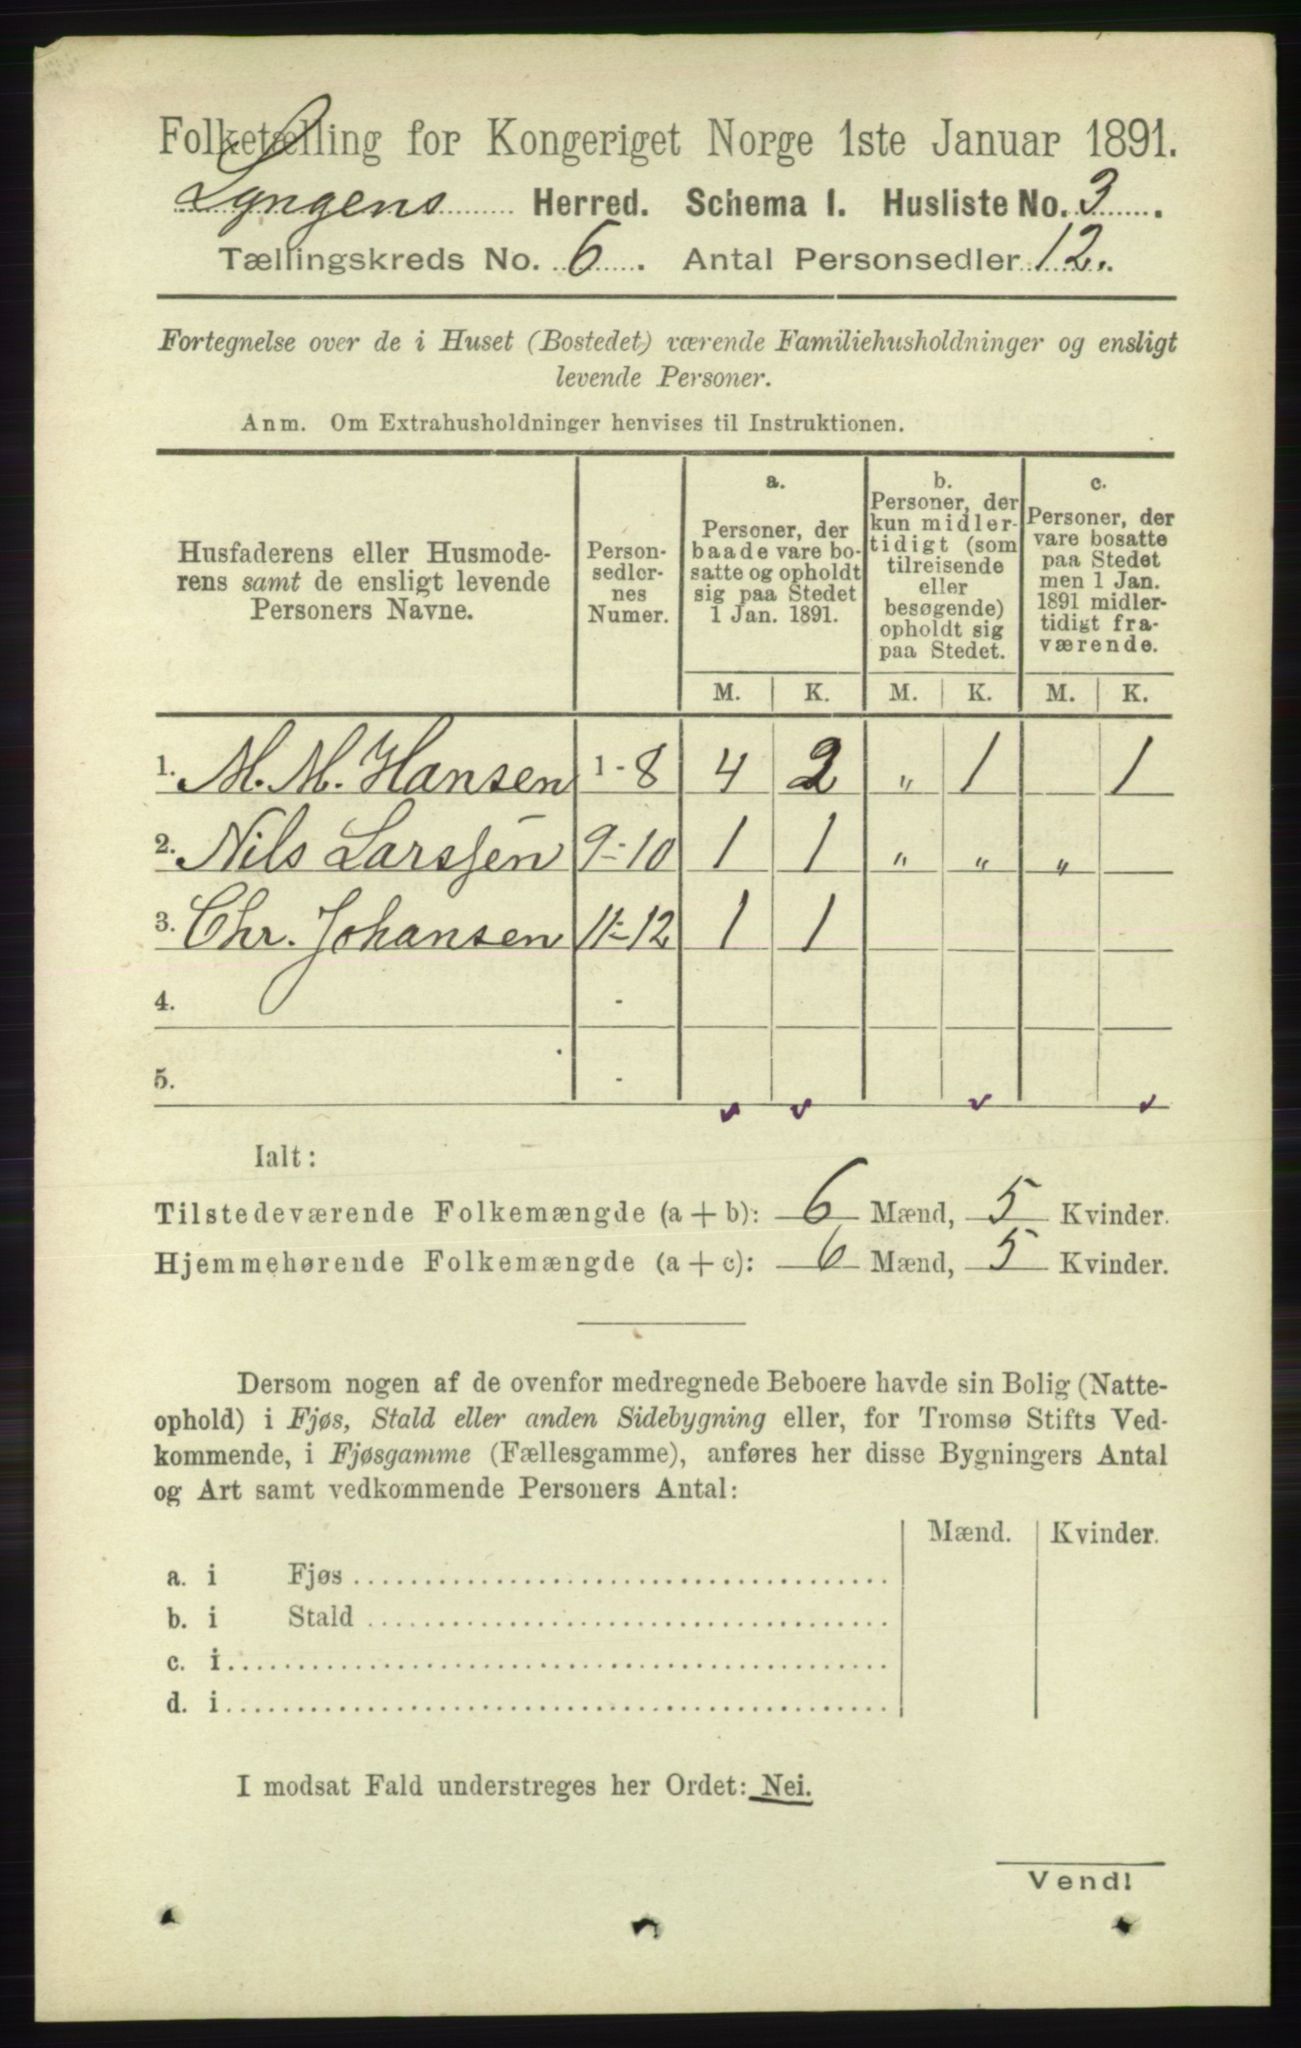 Folketælling for Kongeriget Norge 1ste Januar 1891.
Lyngens Herred. Schema I. Husliste No. 3.
Tællingskreds No. 6. Antal Personsedler 12.
Fortegnelse over de i Huset (Bostedet) værende Familiehusholdninger og ensligt
levende Personer.
Anm. Om Extrahusholdninger henvises til Instruktionen.
Husfaderens eller Husmode-
rens samt de ensligt levende
Personers Navne.
Person-
sedler-
nes
Numer.
a.
Personer, der
baade vare bo-
satte og opholdt
sig paa Stedet
1 Jan. 1891.
b.
Personer, der
kun midler-
tidigt (som
tilreisende
eller
besøgende)
opholdt sig
paa Stedet.
c.
Personer, der
vare bosatte
paa Stedet
men 1 Jan.
1891 midler-
tidigt fra-
værende.
M. K. M. K. M. K.
1. M. M. Hansen 1-8 4 2 " 1 1
2. Nils Larssen 9-10 1 1 " " "
3. Chr. Johansen 11-12 1 1
4. -
5. -
Ialt:
Tilstedeværende Folkemængde (a + b): 6 Mænd, 5 Kvinder.
Hjemmehørende Folkemængde (a + c): 6 Mænd, 5 Kvinder.
Dersom nogen af de ovenfor medregnede Beboere havde sin Bolig (Natte-
ophold) i Fjøs, Stald eller anden Sidebygning eller, for Tromsø Stifts Ved-
kommende, i Fjøsgamme (Fællesgamme), anføres her disse Bygningers Antal
og Art samt vedkommende Personers Antal:
Mænd. Kvinder.
a. i Fjøs
b. i Stald
c. i
d. i
I modsat Fald understreges her Ordet: Nei.
Vend!